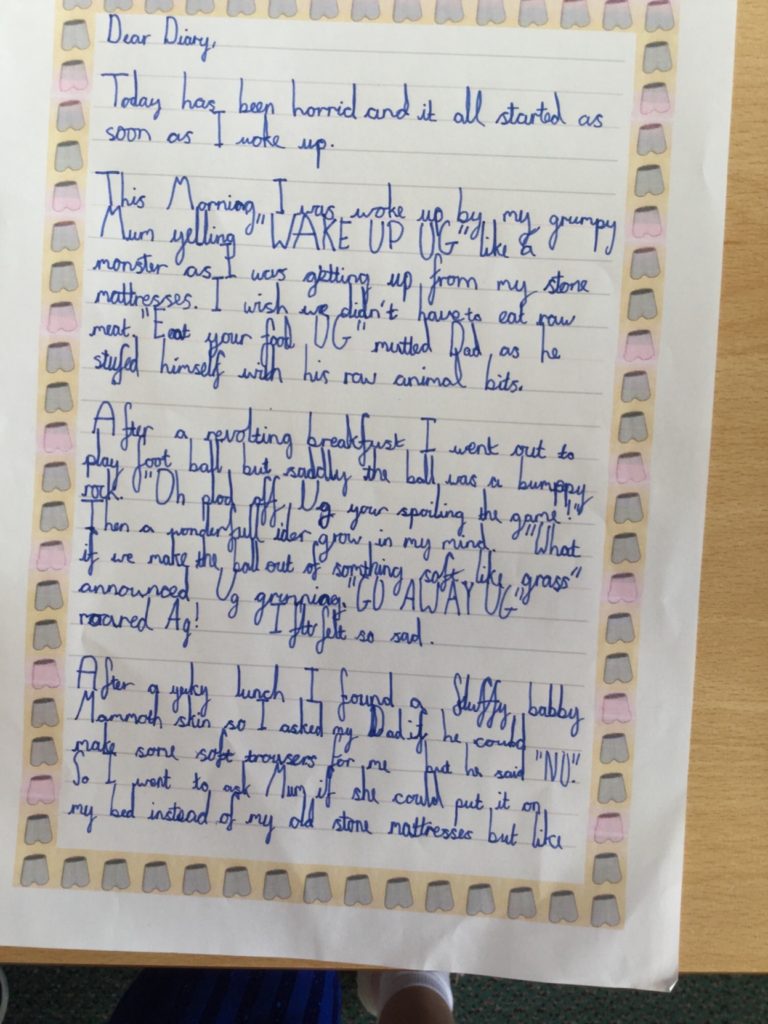 Dear Diary,
Today has been horrid and it all started as
soon as I woke up.
This Morning I was woke up by my grumpy
Mum yelling "WAKE UP UG" like a
monster as I was getting up from my stone
mattresses. I wish we didn't have to eat raw
meat. "Eat your food UG" muttled Dad, as he
stufed himself with his raw animal bits.
After a revolting breakfust I went out to
play foot ball, but saddly the ball was a bumppy
rock. "Oh plod off, Ug your spoiling the game!"
Then a wonderfull ider grow in my mind. "What
if we make the ball out of somthing soft like grass"
announced Ug grinning. "GO AWAY UG"
roared Ag! I felt so sad.
After a yuky lunch I found a fluffy babby
Mammoth skin so I asked my Dad if he could
make some soft trousers for me but he said "NO".
So I went to ask Mum if she could put it on
my bed instead of my old stone mattresses but like